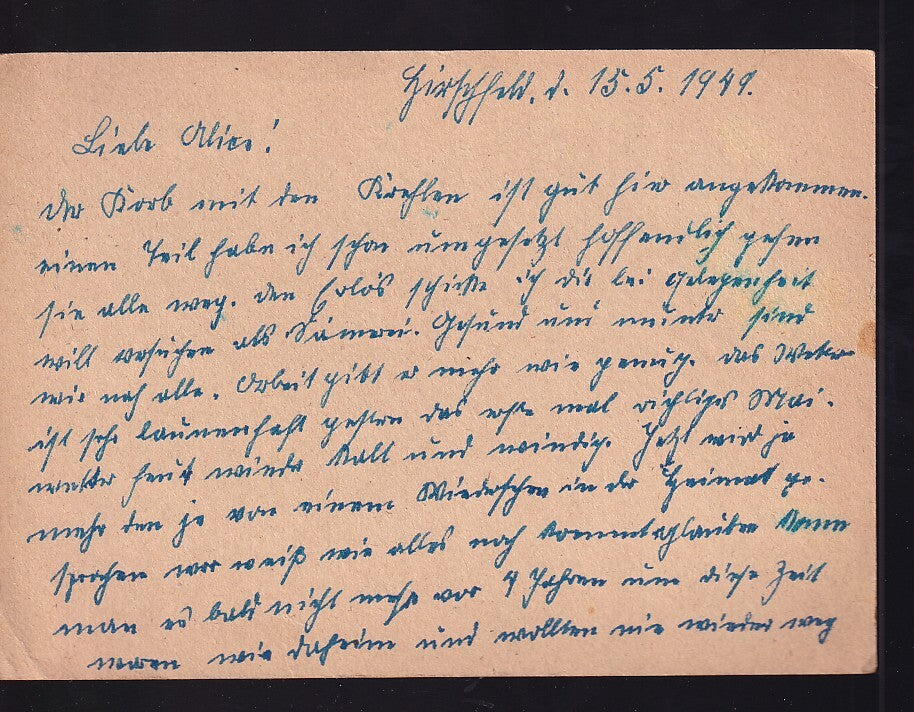 Hirschfeld, d. 15.5.1949.
Liebe Alice!
Der Korb mit den ist gut hier angekommen.
einen Teil habe ich schon umgesetzt hoffendlich gehen
sie alle weg. den Erlös schicke ich dir bei Gelegenheit
will versuchen als Sämerei. Gesund und munter sind
wir noch alle. Arbeit gibt er mehr wie genug. das Wetter
ist sehr launenhaft gestern das erste mal richtiges Mai-
wetter heut wieder kalt und windig. Jetzt wird ja
mehr den je von einem Wiedersehen in der Heimat ge-
sprochen wer weiß wie alles noch kommt glauben kann
man es bald nicht mehr vor 4 Jahren um diese Zeit
waren wir daheim und wollten nie wieder weg